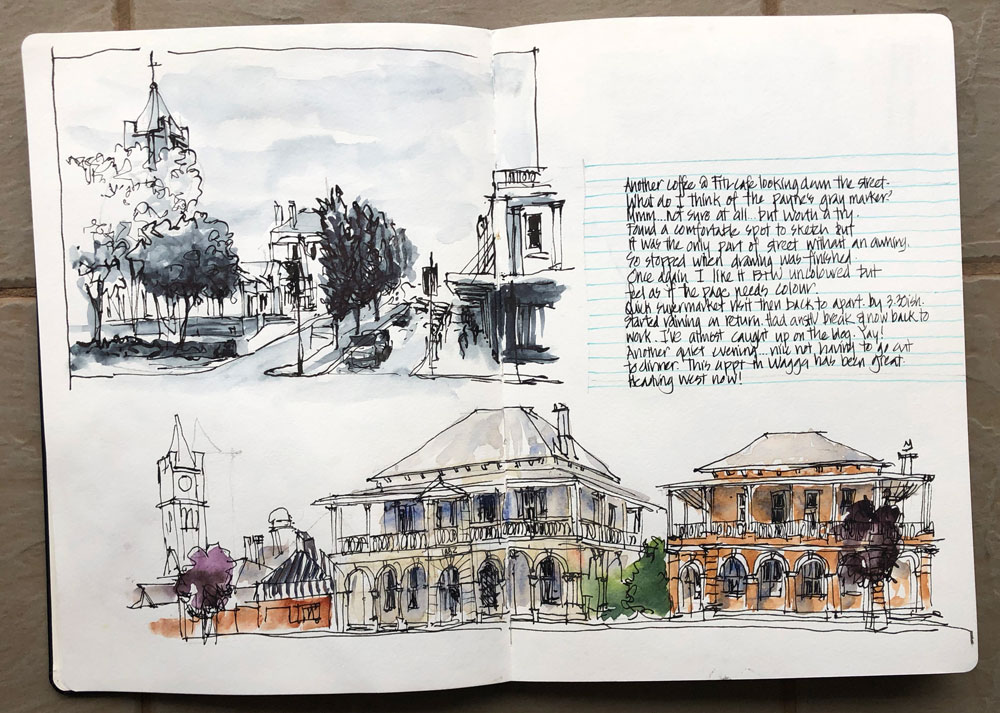 Another coffee @ Fitz cafe looking down the street.
What do I think of the payne's gray marker?
Mmm...not sure at all.. but worth a try.
Found a comfortable spot to sketch but
it was the only part of street without an awning.
So stopped when drawing was finished.
Once again I like it B+W uncoloured but
feel as if the page needs colour.
Quick supermarket visit then back to apart. by 3.30ish.
Started raining on return. Had break & now back to
work. I've almost caught up on the blog. Yay!
Another quiet evening...nice not having to go out
to dinner. This appt in Wagga has been great.
Heading west now!